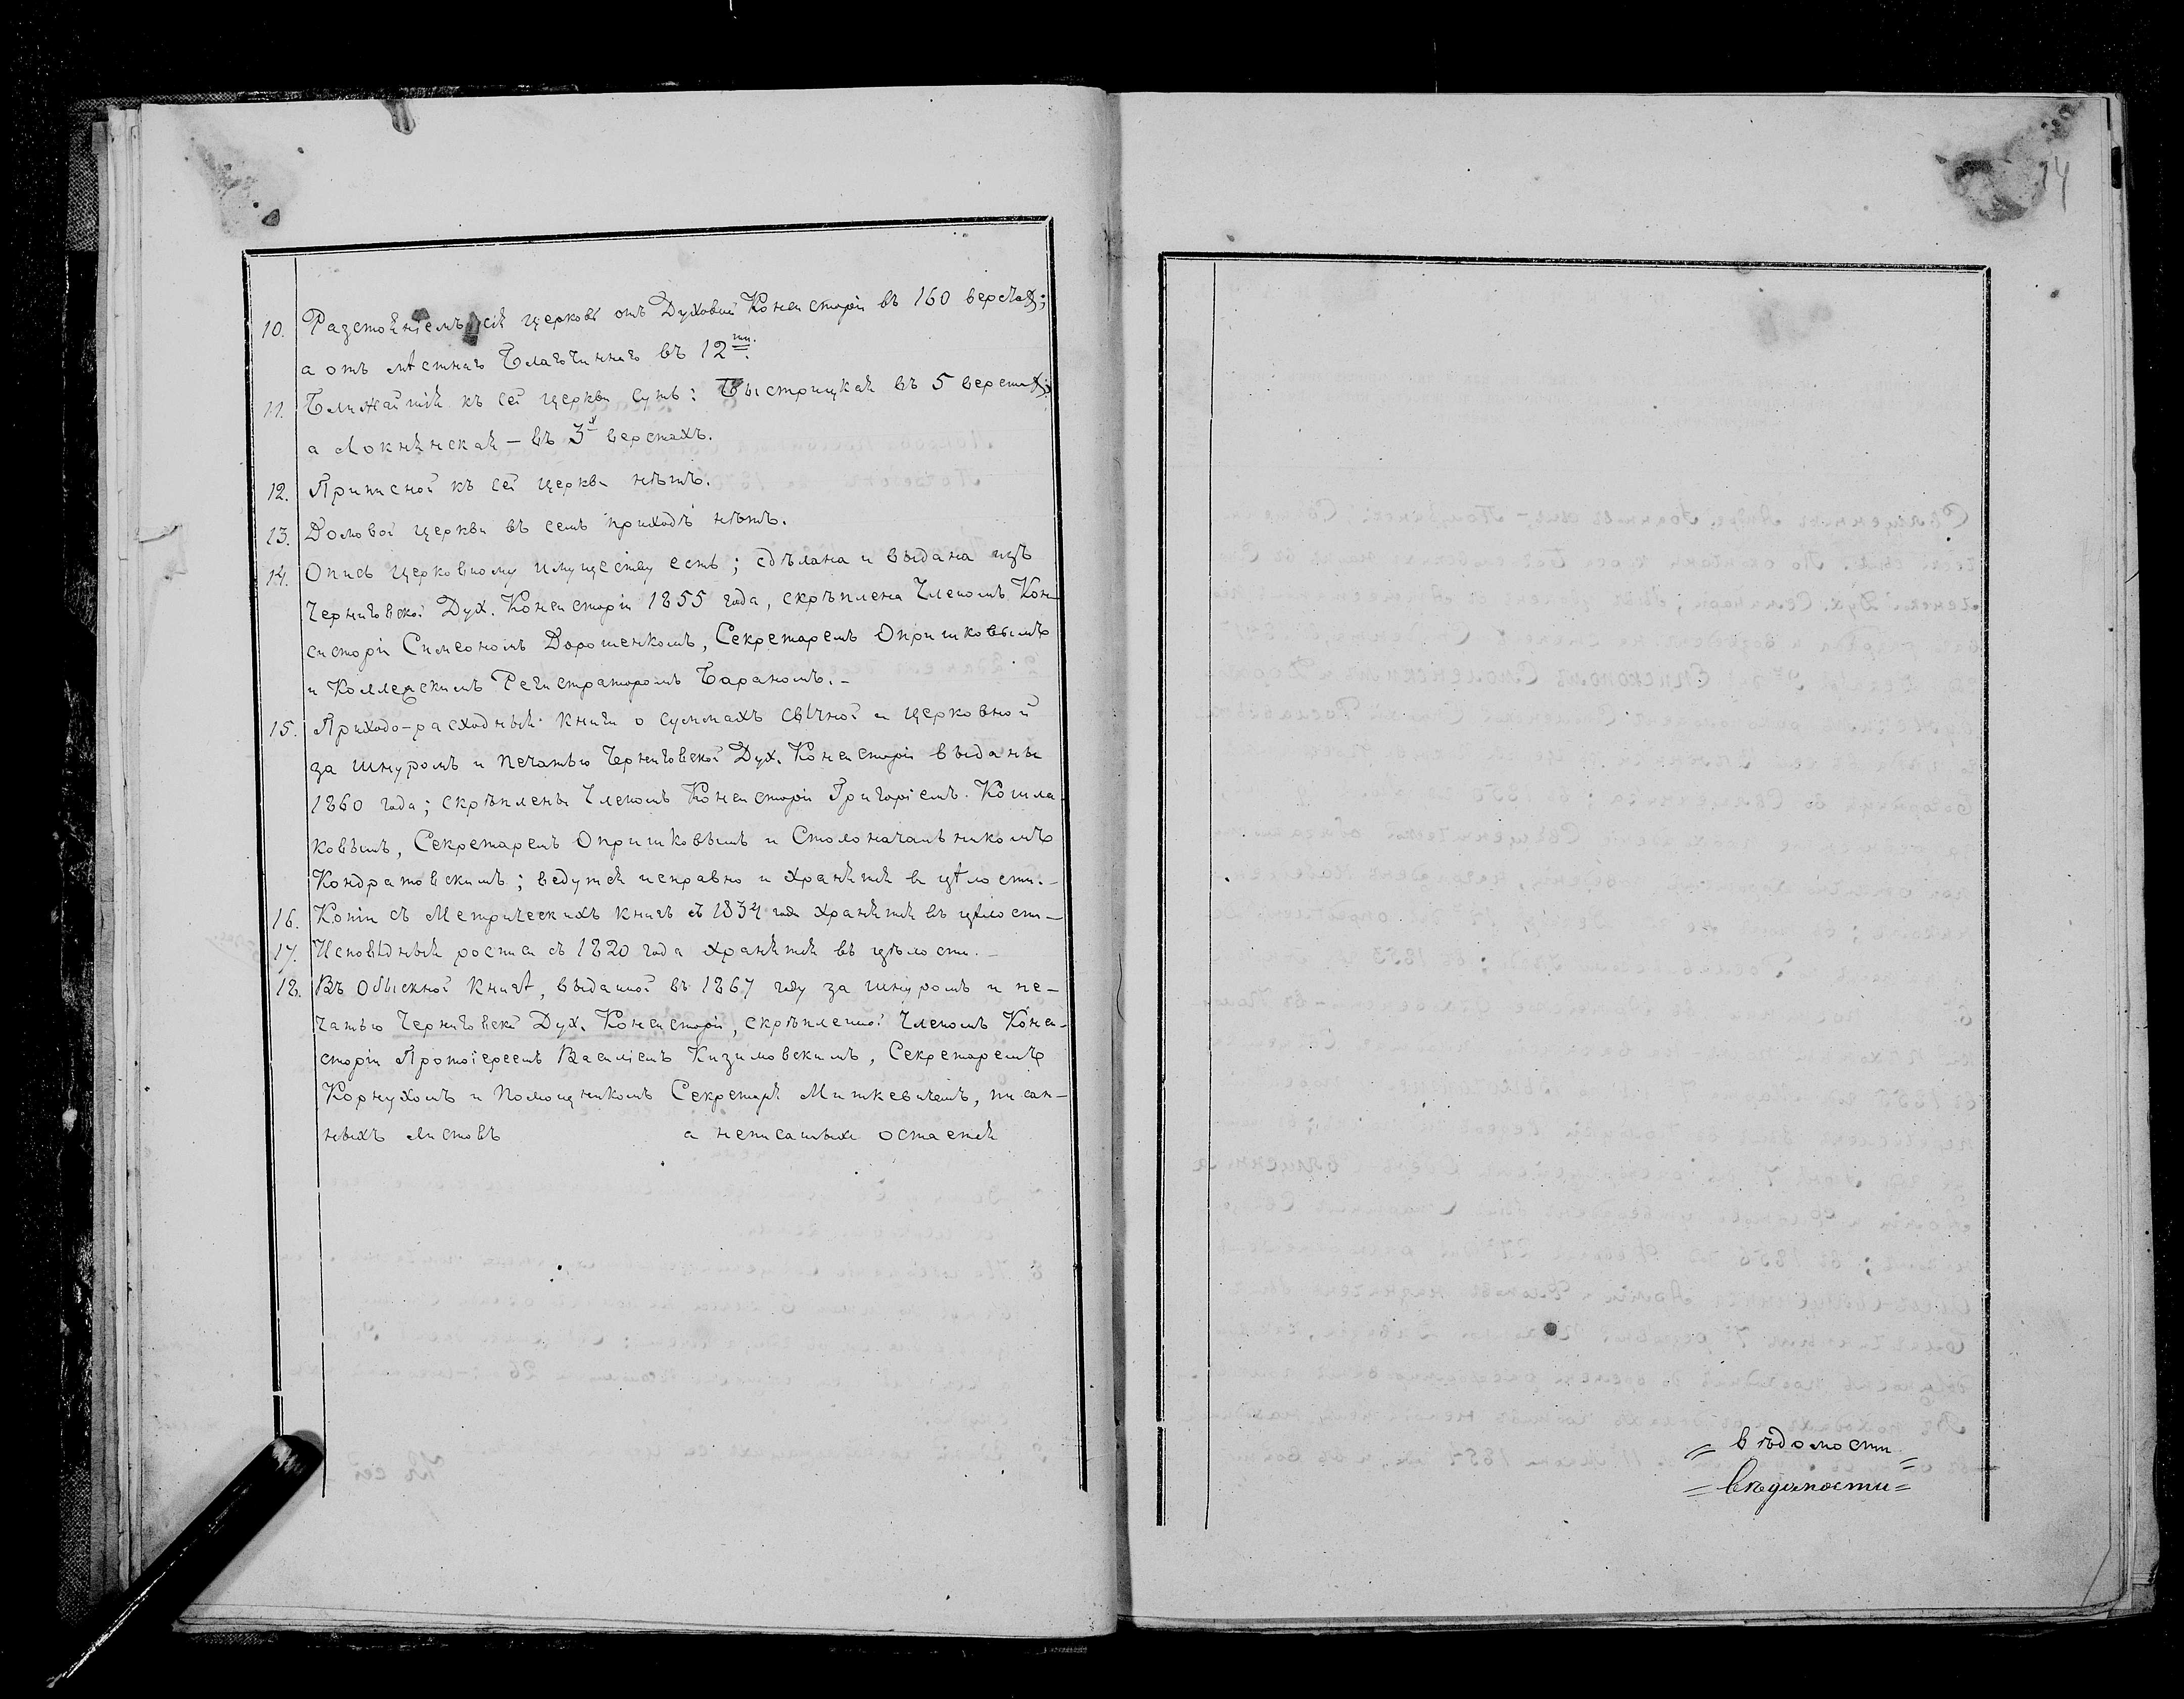 10. Разстояніемъ сія церковь отъ Духовной Консисторіи въ 160 верстахъ;
а отъ мѣстнаго Благочиннаго въ 12ти.
11. Ближайшія къ сей церкви суть: Быстрицкая въ 5 верстахъ;
а Локнянская – въ 3х верстахъ.
12. Приписной къ сей церкви нѣтъ.
13. Домовой церкви въ семъ приходѣ нѣтъ.
14. Опись церковному имуществу есть; сдѣлана и выдана изъ
Черниговской Дух. Консисторіи 1855 года, скрѣплена Членомъ Кон-
систоріи Симеономъ Дорошенкомъ, Секретаремъ Опришковымъ
и Коллежскимъ Регистраторомъ Бараномъ. –
15. Приходо-расходныя книги о суммахъ свѣчной и церковной
за шнуромъ и печатью Черниговской Дух. Консисторіи выданы
1860 года; скрѣплены Членомъ Консисторіи Григоріемъ
ковымъ, Секретаремъ Опришковымъ и Столоначальникомъ
Кондратовскимъ; ведутся исправно и хранятся въ цѣлости. –
16. Копіи съ Метрическихъ книгъ съ 1834 года хранятся въ цѣлости –
17. Исповѣдныя росписи съ 1820 года хранятся въ цѣлости. –
18. Въ Обыскной книгѣ, выданной въ 1867 году за шнуромъ и пе-
чатью Черниговской Дух. Консисторіи, скрѣпленной Членомъ Конси-
сторіи Протоіереемъ Василіемъ Кизимовскимъ, Секретаремъ
Корнухомъ и Помощникомъ Секретаря Миткевичемъ, писан-
ныхъ листовъ а неписанныхъ остается
14
= вѣдомости =
= вѣдомости =